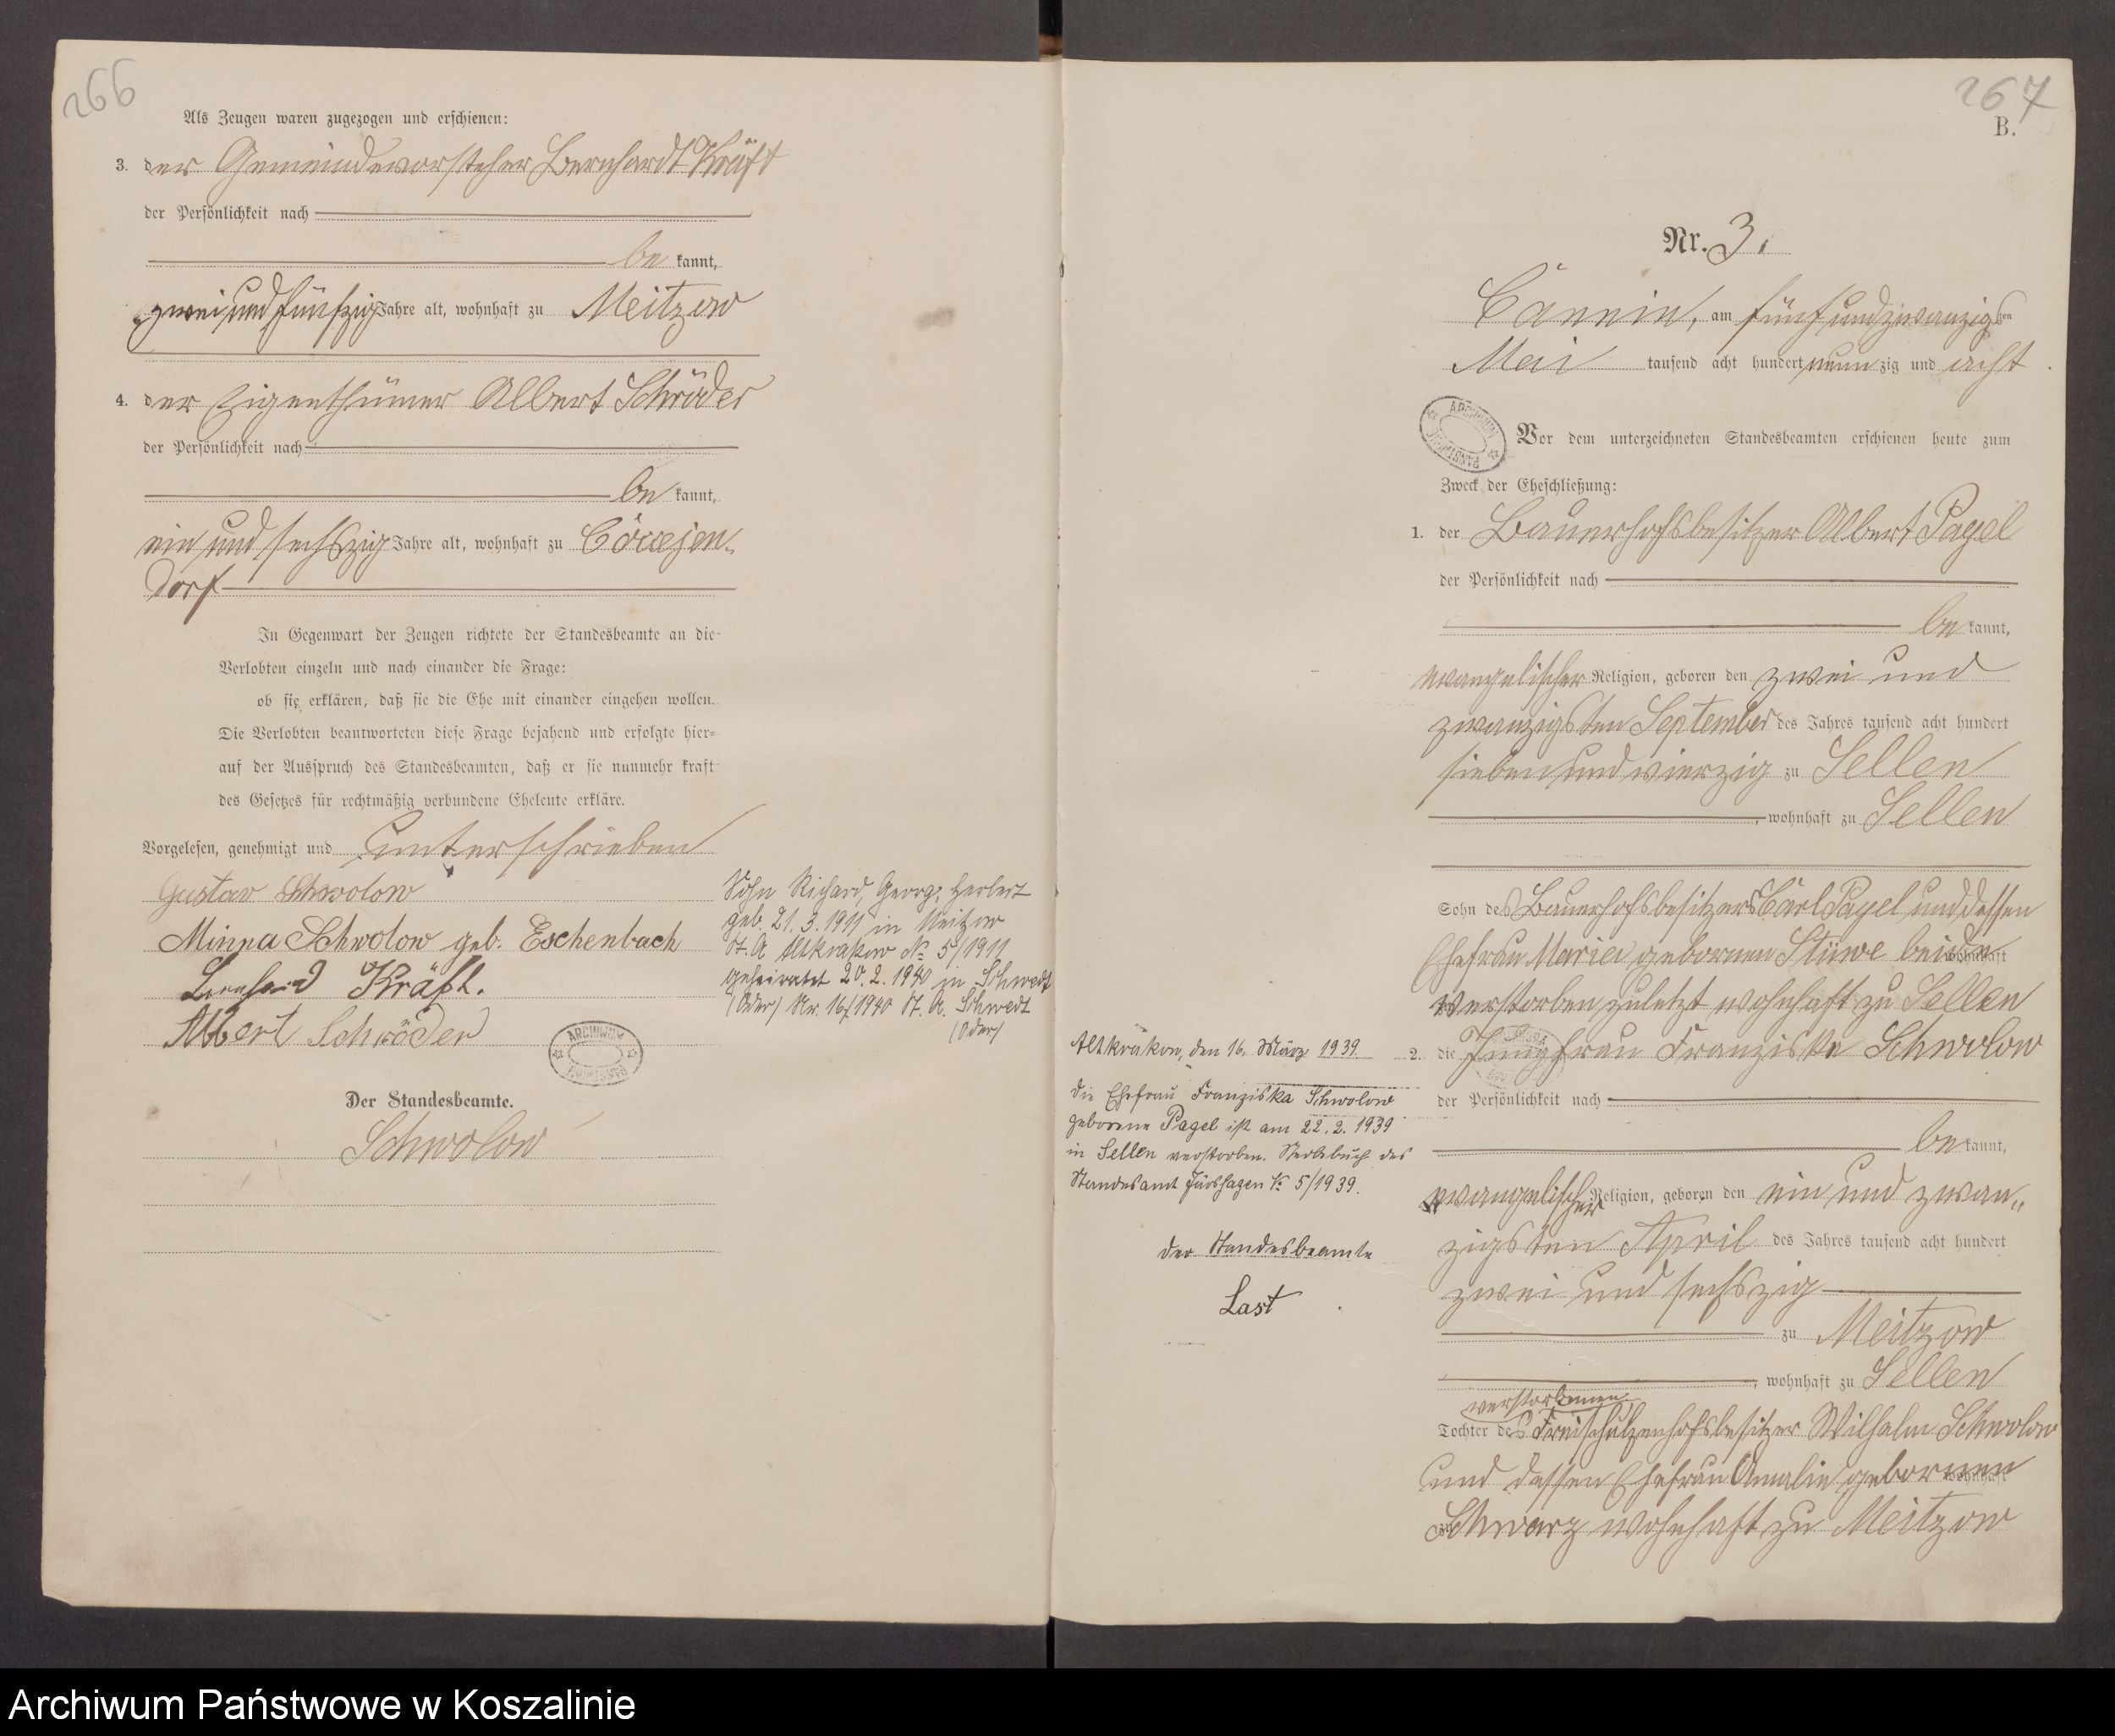 266
Als Zeugen waren zugezogen und erschienen:
3. der Gemeindevorsteher Bernhardt Kräft
der Persönlichkeit nach
be kannt,
zwei und fünfzig Jahre alt, wohnhaft zu Meitzow
4. der Eigenthümer Albert Schröder
der Persönlichkeit nach
be kannt,
ein und sechszig Jahre alt, wohnhaft zu Coccejen-
dorf
In Gegenwart der Zeugen richtete der Standesbeamte an die
Verlobten einzeln und nach einander die Frage:
ob sie erklären, daß sie die Ehe mit einander eingehen wollen.
Die Verlobten beantworteten diese Frage bejahend und erfolgte hier-
auf der Ausspruch des Standesbeamten, daß er sie nunmehr kraft
des Gesetzes für rechtmäßig verbundene Eheleute erkläre.
Vorgelesen, genehmigt und unterschrieben
Gustav Schwolow
Minna Schwolow geb. Eschenbach
Bernhard Kräft.
Albert Schröder
ARCHIWUM
Der Standesbeamte.
Schwolow
Sohn Richard, Georg, Herbert
geb. 21.3.1911 in Meitzow
St. A Altkrakow № 5/1911
geheiratet 20.2.1940 in Schwedt
(Oder) Nr. 16/1940 St. A. Schwedt
(Oder)
267
B.
Nr. 3.
Cannin, am fünf und zwanzigsten
Mai tausend acht hundert neun zig und acht
ARCHIWUM
Vor dem unterzeichneten Standesbeamten erschienen heute zum
Zweck der Eheschließung:
1. der Bauerhofsbesitzer Albert Pagel
der Persönlichkeit nach
be kannt,
evangelischer Religion, geboren den zwei und
zwanzigsten September des Jahres tausend acht hundert
sieben und vierzig zu Sellen
, wohnhaft zu Sellen
Sohn des Bauerhofsbesitzers Carl Pagel und dessen
Ehefrau Maria gebornen Stüwe beide wohnhaft
verstorben zuletzt wohnhaft zu Sellen
2. die Jungfrau Franziska Schwolow
der Persönlichkeit nach
be kannt,
evangelischer Religion, geboren den ein und zwan-
zigsten April des Jahres tausend acht hundert
zwei und sechszig
zu Meitzow
, wohnhaft zu Sellen
verstorbenen
Tochter des Freischulzenhofsbesitzer Wilhelm Schwolow
und dessen Ehefrau Amalie gebornen wohnhaft
Schwarz wohnhaft zu Meitzow
Altkrakow, den 16. März 1939.
Die Ehefrau Franziska Schwolow
geborene Pagel ist am 22.2.1939
in Sellen verstorben. Sterbebuch des
Standesamt Järshagen № 5/1939.
Der Standesbeamte
Last
Archiwum Państwowe w Koszalinie